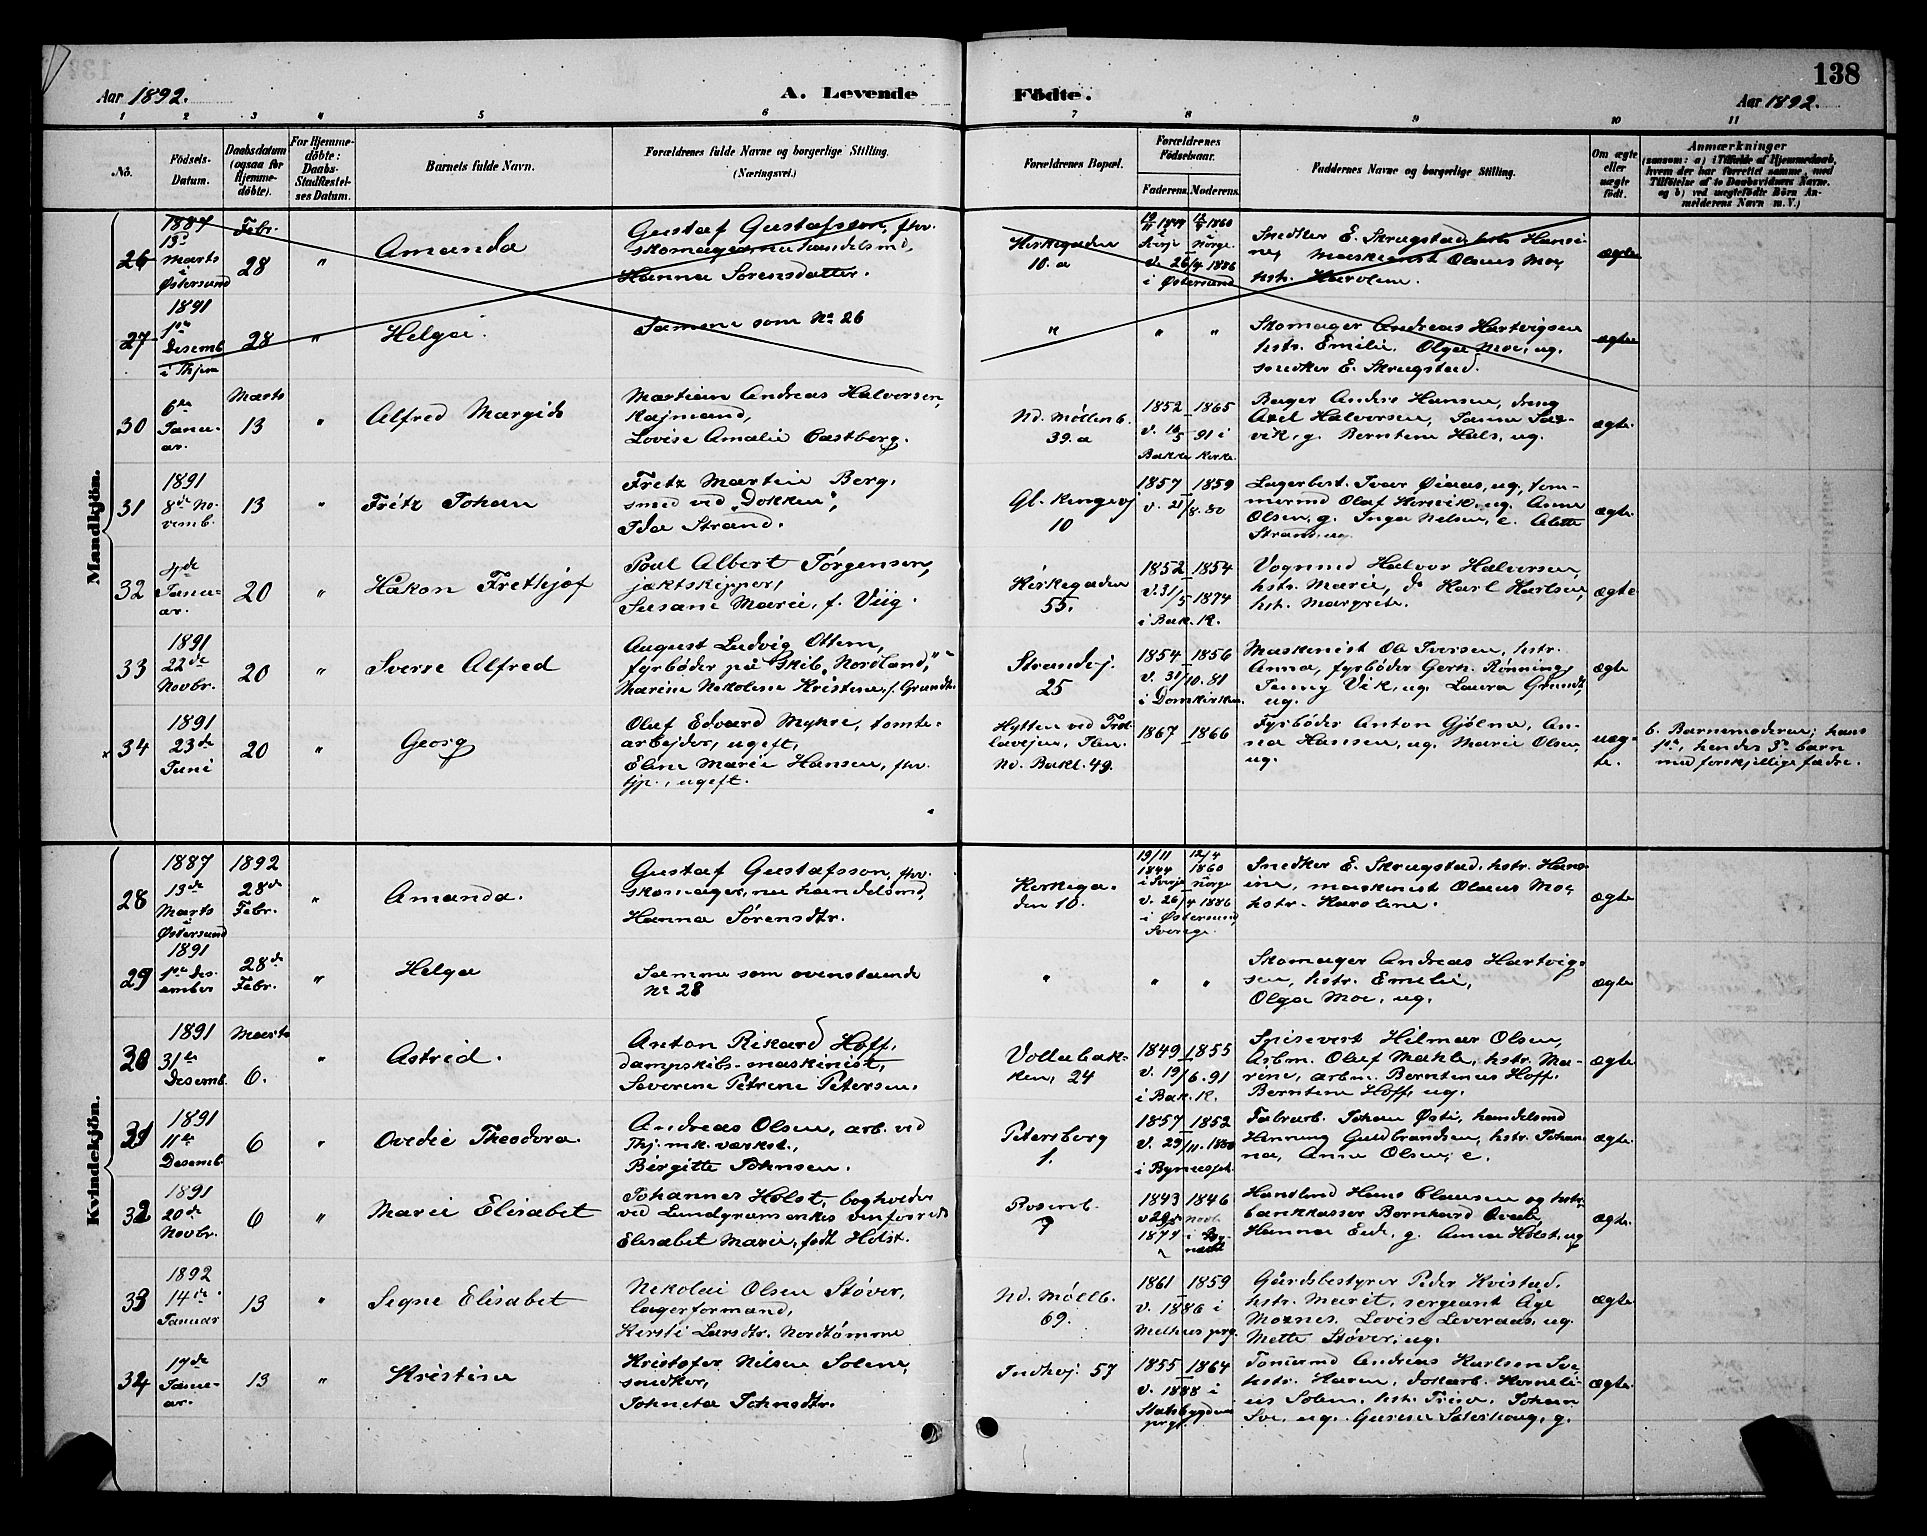 138
Aar 1892.
A. Levende Födte.
Aar 1892.
1 2 3 4 5 6 7 8 9 10 11
No.
Födsels-Datum.
Daabsdatum (ogsaa for Hjemmedöbte).
For Hjemmedöbte: Daabs-Stadfæstelses Datum.
Barnets fulde Navn.
Forældrenes fulde Navne og borgerlige Stilling. (Næringsvei.)
Forældrenes Bopæl.
Forældrenes Födselsaar.
Faderens. Moderens.
Faddernes Navne og borgerlige Stilling.
Om ægte eller uægte födt.
Anmærkninger
(saasom: a) i Tilfælde af Hjemmedaab, hvem der har forrettet samme, med Tilföielse af to Daabsvidners Navne, og b) ved uægtefödte Börn Anmelderens Navn m. V.)
Mandkjön.
26
1887
13de
Marts
i
Østersund
Febr.
28
"
Amanda
Gustaf Gustafsson, fhv.
skomager nu handelsmd,
Hanna Sørensdatter.
Kirkegaden
10. a
v. 26/4 1886
i Østersund
Snedker E. Skrugstad, hstr. Hansine, maskinist Olaus Moe,
hstr. Karoline.
ægte
27
1891
1ste
Desemb
28
"
Helga.
Samme som No 26
"
"
"
Skomager Andreas Hartvigsen
hstr. Emilie. Olga Moe, ug.
snedker E. Skrugstad.
ægte
30
6te
Januar.
Marts
13
"
Alfred Margido
Martian Andreas Halvorsen,
Lovise Amalie Castberg.
Nd. Møllenb.
39. a
1852 – 1865
v. 16/5 91 i
Bakke Kirke.
Bager Anders Hansen, dreng
Axel Halvorsen,
g. Berntine Hals, ug.
ægte.
31
1891
8de November.
13
"
Fritz Johan
Fritz Martin Berg,
smed ved "Dokken",
Ida Strand.
Gl. Kongevej
10
1857 – 1859
v. 21/8. 80
Lagerbest. Ivar Øiaas, ug, tømmermd Olaf ug. Anne
Olsen, g. Inga Nelsen, e. Alette
Strand, ug.
ægte.
32
4de
Januar.
20
"
Håkon Frethjof
Poul Albert Jørgensen,
jaktskipper,
Susane Marie, f. Viig.
Kirkegaden
55.
1852 – 1854
v. 31/5 1874
i Bak. K.
Vognmd Halvor Halvorsen,
hstr. Marie, do Karl Karlsen,
hst. Margrete.
ægte
33
1891
22de
Novbr.
20
"
Sverre Alfred
August Ludvig Ottem,
fyrbøder på skib "Nordland,"
Marine Nekoline Kristine, f. Grundt.
Strandvj.
25
1854 – 1856
v. 31/10. 81
i Domkirken.
Maskinist Ole Iversen, hstr.
Anna, fyrbøder Gerh. Rønning,
Jenny Vik, ug. Laura Grundt,
ug.
ægte
34
1891
23de
Juni
20
"
Georg
Oluf Edvard Myhre, tomtearbejder, ugeft,
Eline Marie Hansen, fhv.
tjp., ugeft.
Hytten ved Trollavejen, Ilen.
Nd. Bakl. 49.
1867 – 1866
Fyrbøder Anton Gjølme, Anna Hansen, ug. Marie Olsen,
ug.
uægte.
b. Barnemoderen; hans
1ste, hendes 3die barn
med forskjellige fædre.
Kvindekjön.
28
1887
13de
Marts
i
Østersund
1892
28de
Febr.
"
Amanda.
Gustaf Gustafsson, fhv.
skomager, nu handelsmd,
Hanna Sørensdtr.
Kirkegaden 10.
19/11 12/4
1844 1860
i Sverje Norge
v. 26/4 1886
i Østersund,
Sverige.
Snedker E. Skrugstad, hstr. Hansine, maskinist Olaus Moe,
hstr. Karoline.
ægte
29
1891
1ste Desember
28de
Febr.
"
Helga
Samme som ovenstaaende
No 28
"
"
"
Skomager Andreas Hartvigsen, hstr. Emilie,
Olga Moe, ug.
ægte
30
1891
31te
Desemb.
Marts
6.
"
Astrid.
Anton Rikard Hoff,
dampskibs-maskinist,
Severine Petrine Petersen.
Vollabakken, 24
1849 – 1855
v. 19/6. 91
i Bak. K.
Hilmar Olsen,
Arbm. Olaf Makle, hstr. Marine, arbm. Berntinus Hoff,
Berntine Hoff, ug.
ægte
31
1891
11te
Desemb.
6
"
Ovedie Theodora.
Andreas Olsen, arb. ved
Thj. mk. værkst.,
Birgitte Johnsen.
Petersborg
1.
1857 – 1852
v. 29/11. 1880
Fabrarb. Johan Østi, handelsmd
Henning Guldbrandsen, hstr. Johanna, Anne Olsen, e.
ægte.
32
1891
20de
Novbr.
6
"
Marie Elisabet
Johannes Holst, bogholder
ved Lundgrens enkes vinforretn
Elisabet Marie, født Holst.
Rosenb.
9
1843 – 1846
1874
Handlmd Hans Clausen og hstr.
bankkasser Bernhard
Hanna g. Anna Holst, ug
ægte.
33
1892
14de
Januar
13
"
Signe Elisabet
Nekolai Olsen Støver,
lagerformand,
Kirsti Larsdtr. Nordtømme
Nd. Møllb.
69.
1861 – 1859
v. 1886 i
Melhus prg.
Gårdsbestyrer Peder Kvistad,
hstr. Marit, sergeant Åge
Moznes, Lovise Leveraas, ug.
Mette Støver, ug.
ægte
34
19de
Januar.
13
"
Kristine
Kristofer Nilsen Solem,
snedker,
Johneta Johnsdtr.
Indhvj. 57
1855 – 1864
v. 1888 i
Stadsbygdens
prg.
Andreas Karlsen
hstr. Karen, dokarb. Kornelius Solem, hstr. Johan
ug. g.
ægte.